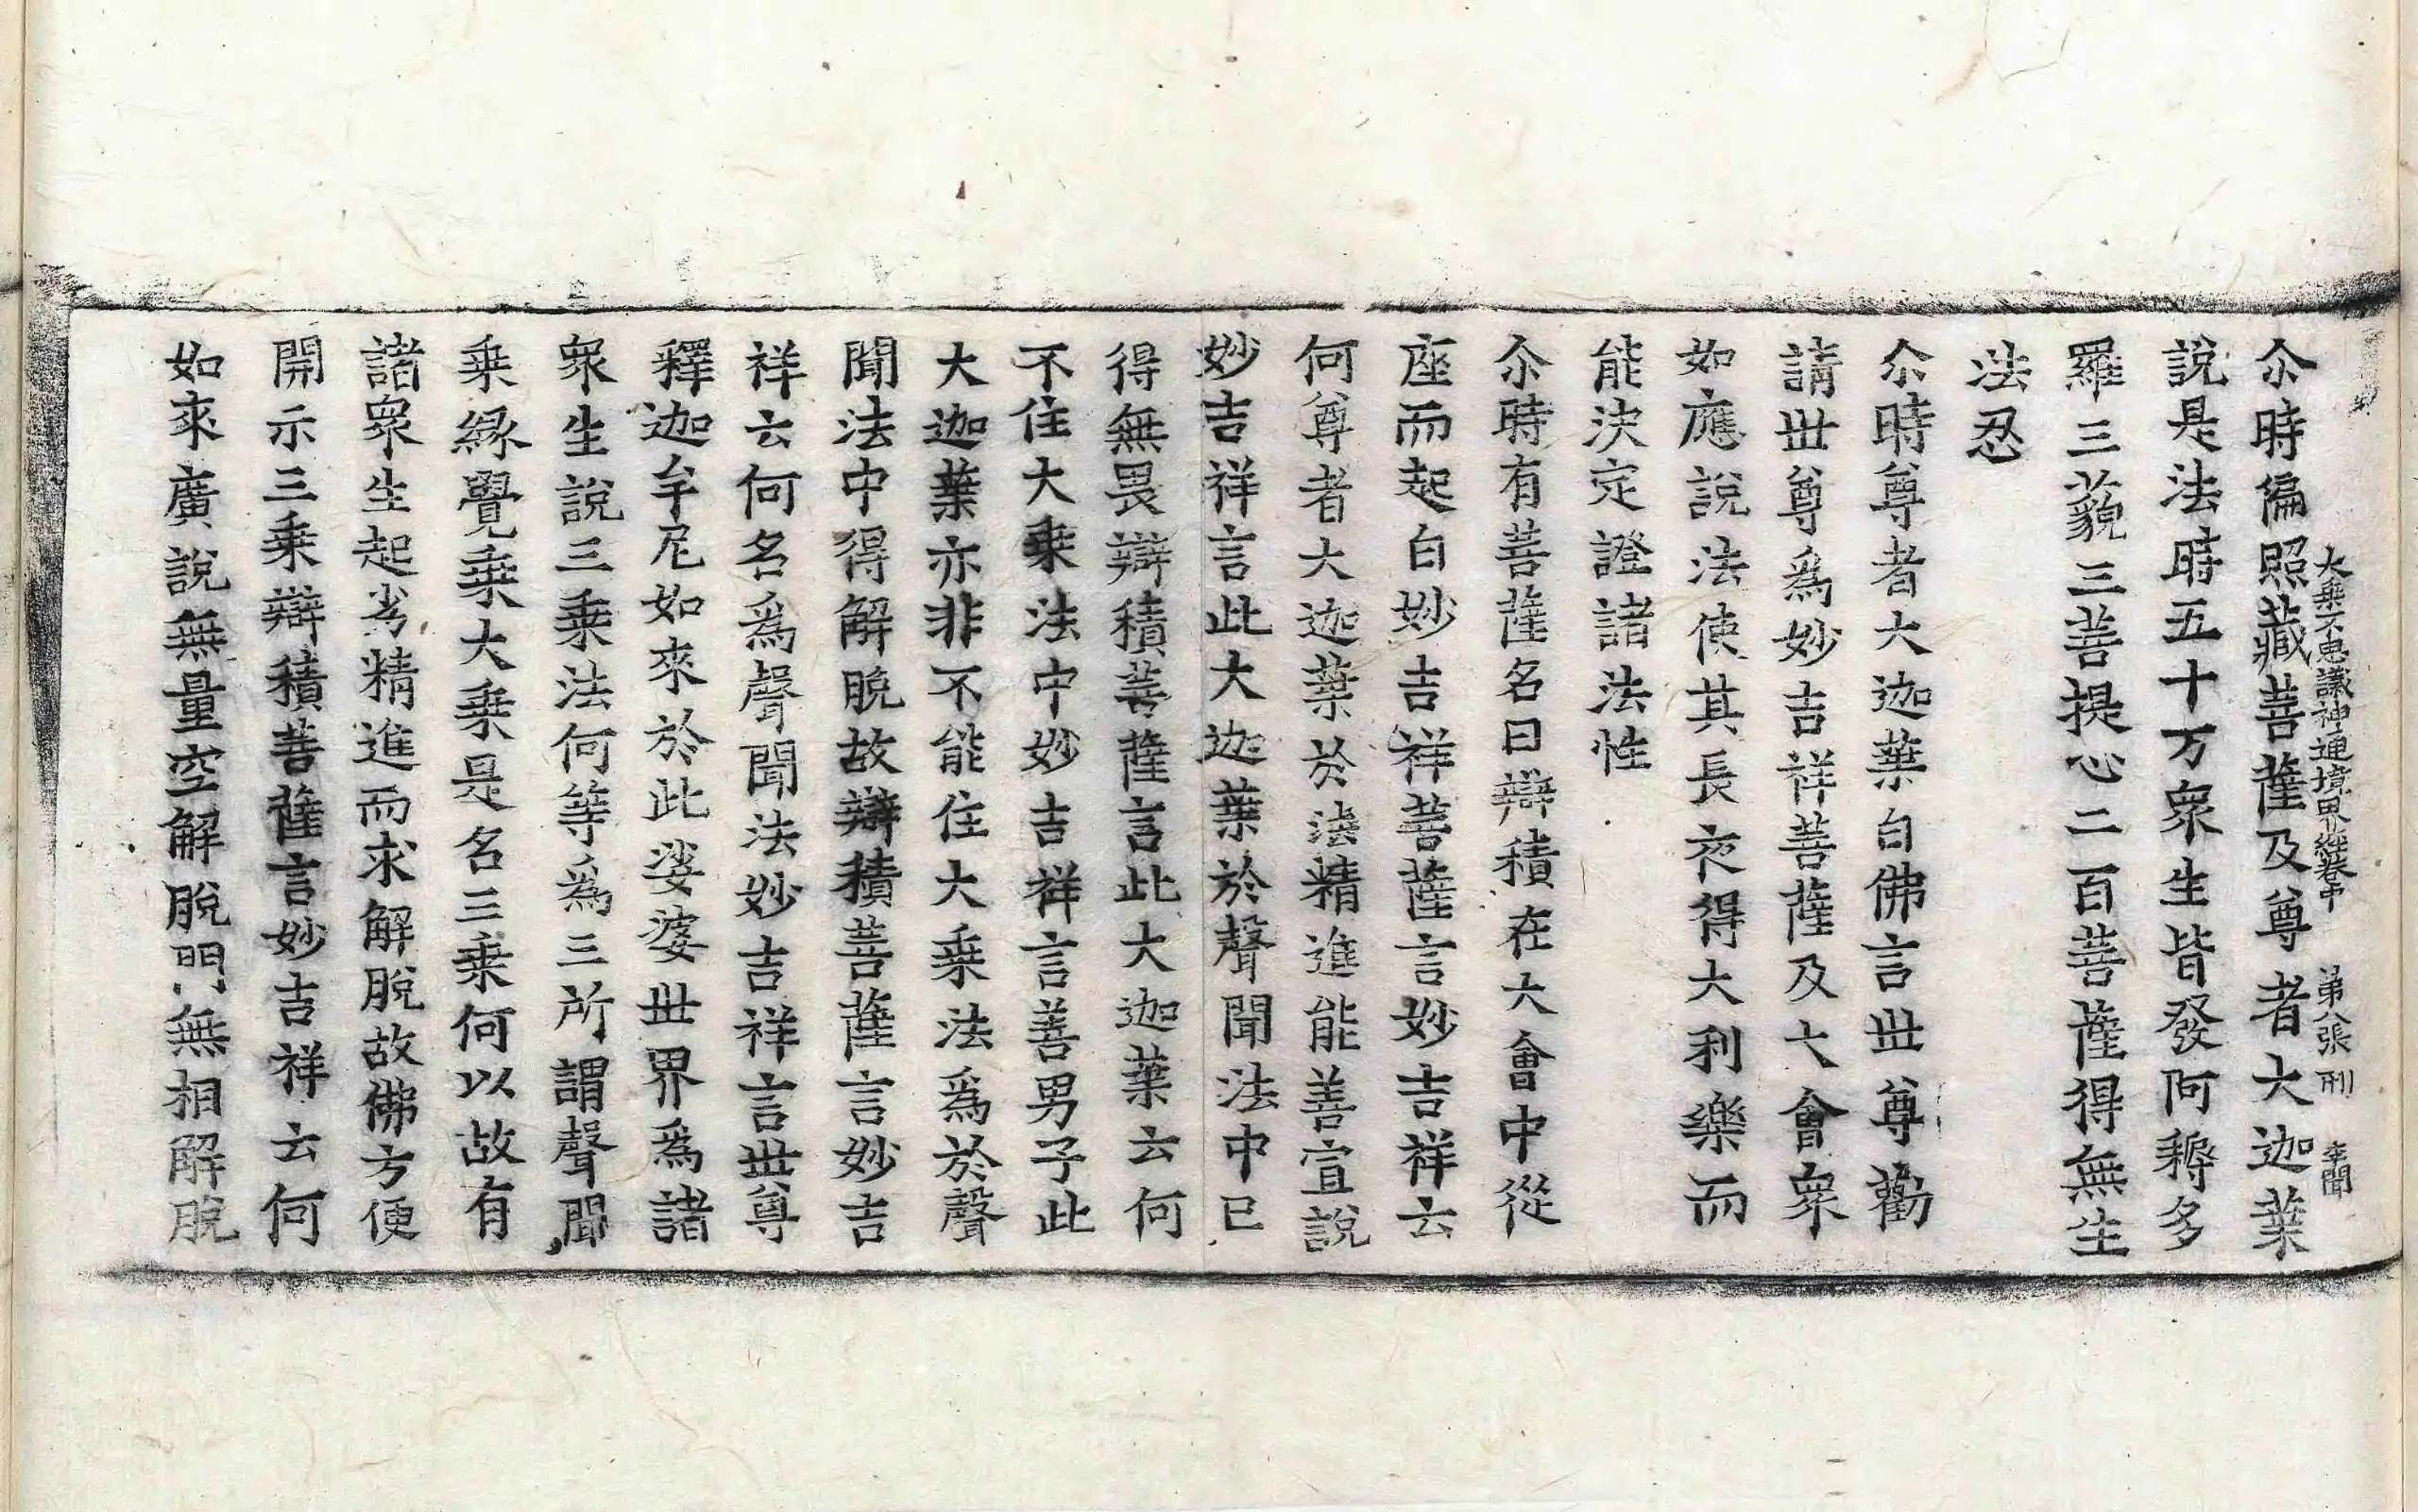 大乘不思議神通境界經卷中　第八張　刑　李聞
尒時徧照藏菩薩及尊者大迦葉
說是法時五十万衆生皆發阿耨多
羅三藐三菩提心二百菩薩得無生
法忍
尒時尊者大迦葉白佛言世尊勸
請世尊爲妙吉祥菩薩及大會衆
如應說法使其長夜得大利樂而
能決定證諸法性
尒時有菩薩名曰辯積在大會中從
座而起白妙吉祥菩薩言妙吉祥云
何尊者大迦葉於法精進能善宣說
妙吉祥言此大迦葉於聲聞法中已
得無畏辯積菩薩言此大迦葉云何
不住大乘法中妙吉祥言善男子此
大迦葉亦非不能住大乘法爲於聲
聞法中得解脫故辯積菩薩言妙吉
祥云何名爲聲聞法妙吉祥言世尊
釋迦牟尼如來於此娑婆世界爲諸
衆生說三乘法何等爲三所謂聲聞
乘緣覺乘大乘是名三乘何以故有
諸衆生起劣精進而求解脫故佛方便
開示三乘辯積菩薩言妙吉祥云何
如來廣說無量空解脫門無相解脫